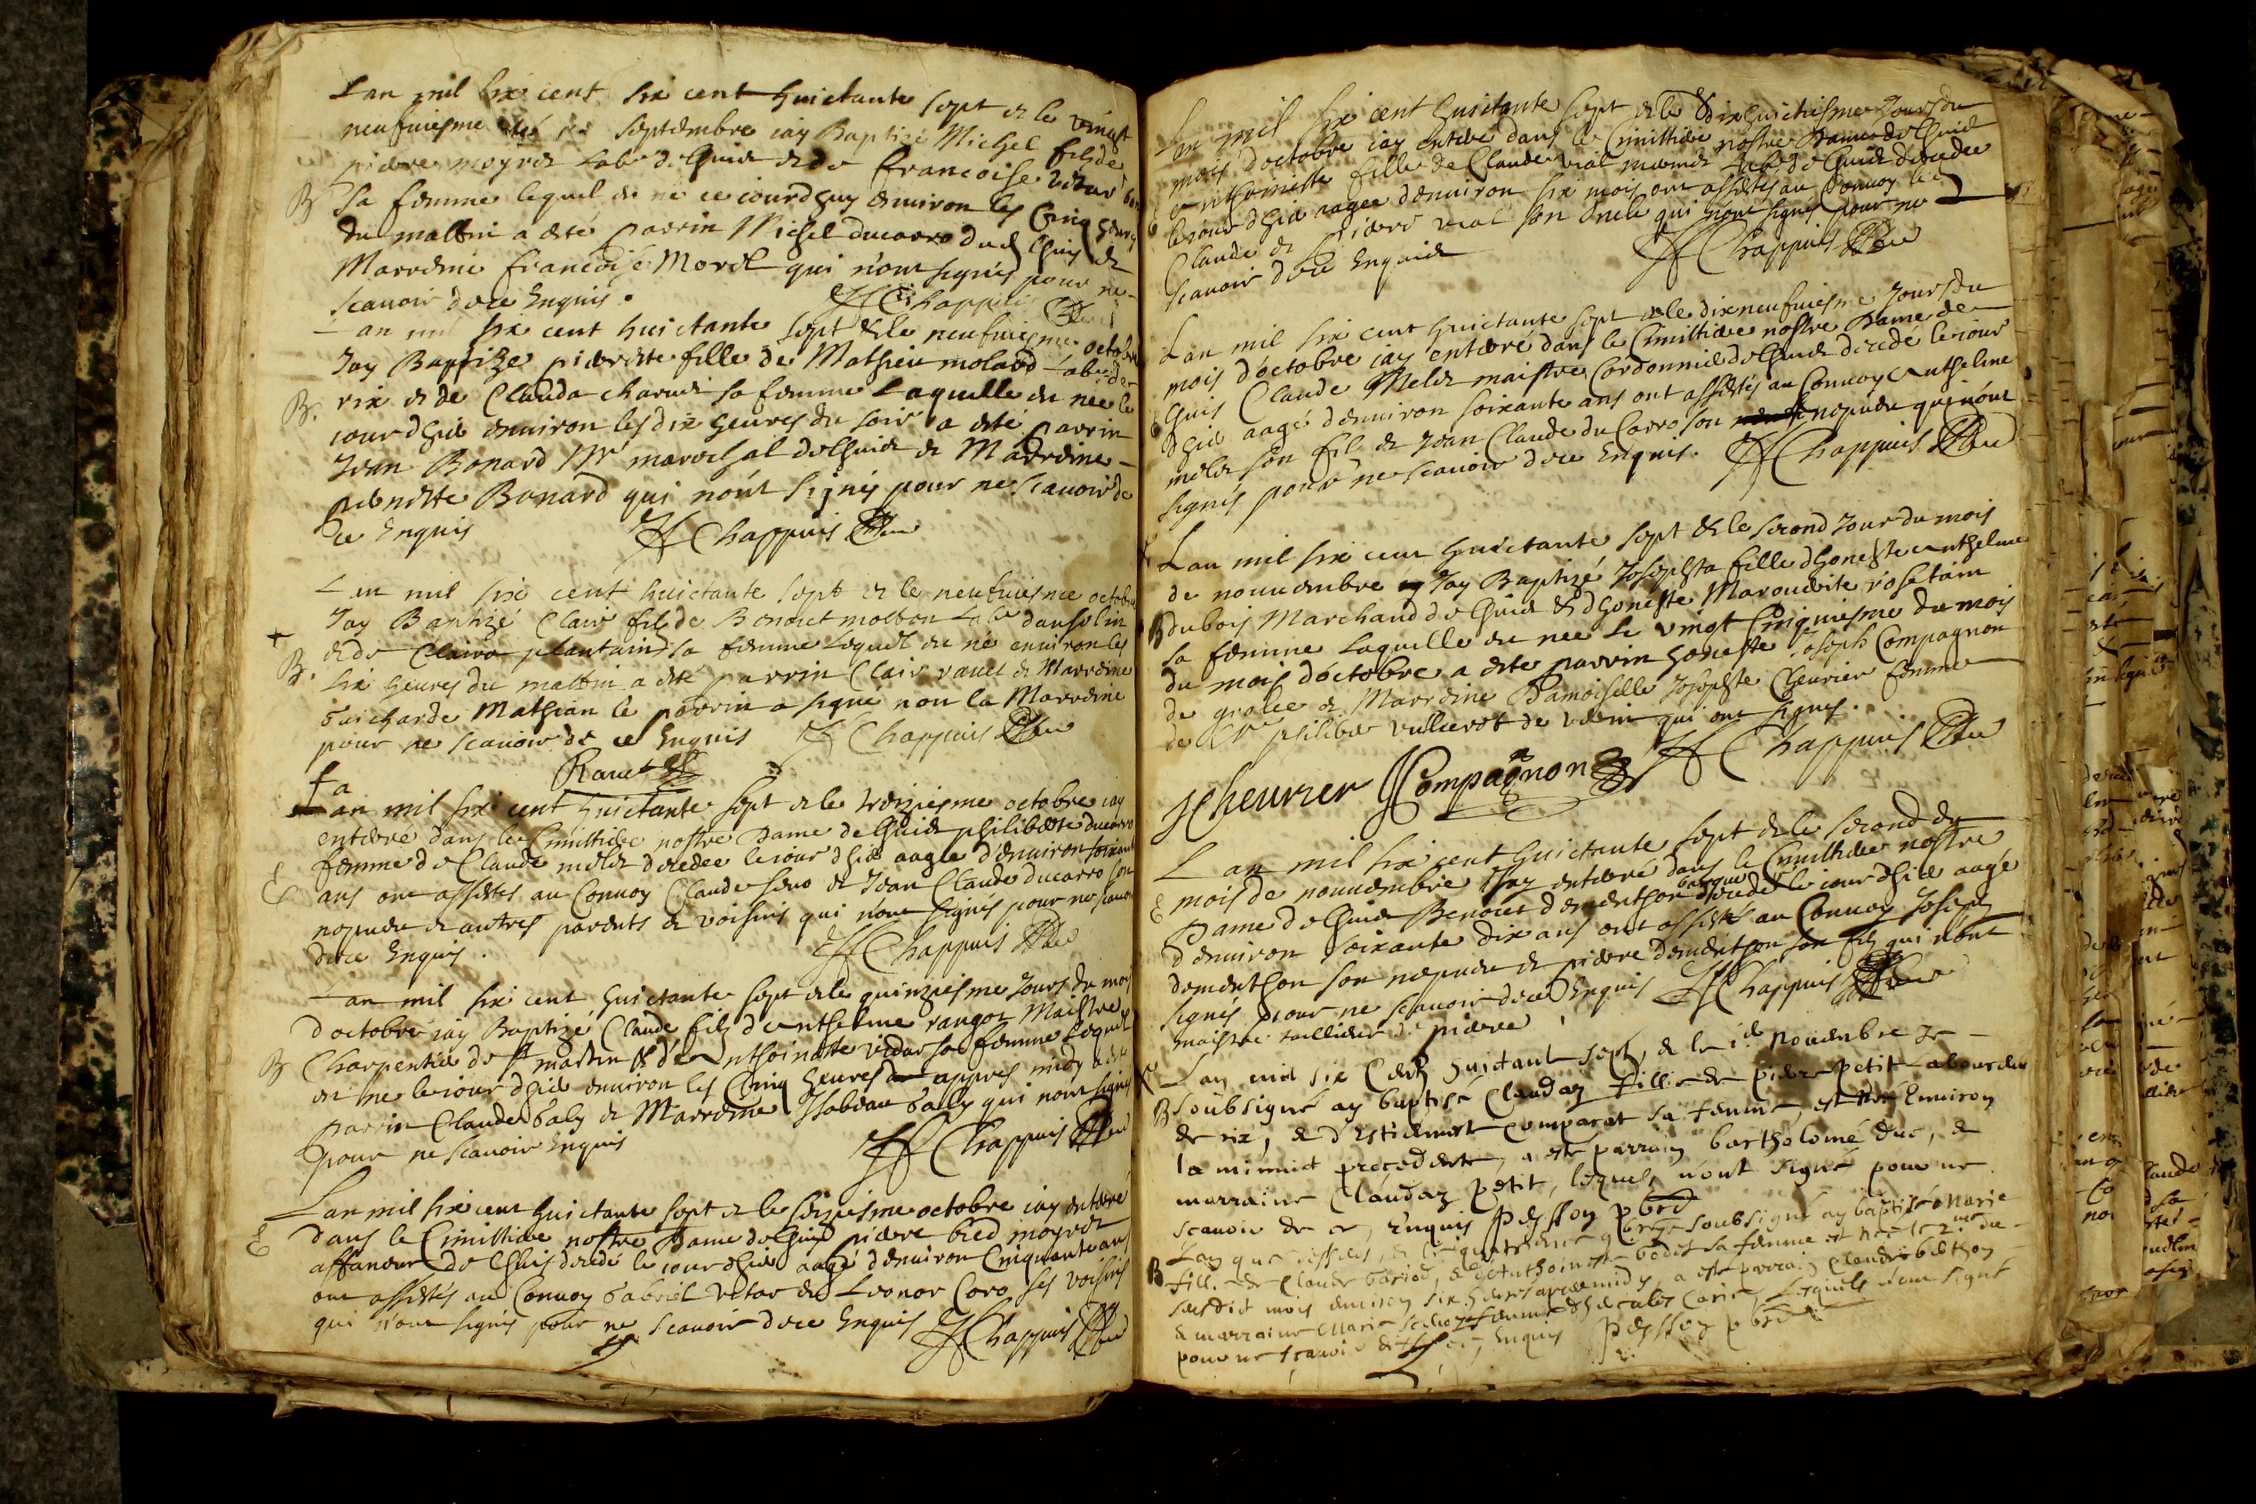 L'an mil six cent six cent huictante sept et le vingt
neufuiesme septembre iay Baptizé Michel fils de
pierre moyret Lab. de Guid et de francoise
B sa femme lequel est né ce iourdhuy enuiron les Cinq heures
du mattin a esté parrin Michel ducarro dud
Marreine francoise Morel qui n'ont signés pour ne
scauoir de ce Enquis. Chappuis
an mil six cent huictante sept et le neufuiesme octobre
Jay Baptize pierrette fille de Mathieu molard Lab. de
B. rix et de Clauda charuet sa femme Laquelle est nee le
iour dhier enuiron les dix heures du soir a esté parrin
Jean Bonard Mr mareschal de Guid et Marreine
pernette Bonard qui n'ont signés pour ne scauoir de
ce Enquis Chappuis
L'an mil six cent huictante sept et le neufuiesme octobre
Jay Baptizé Clair fils de Benoict molton Lab.
et de Claira plantain sa femme Lequel est né enuiron les
B. six heures du mattin a esté parrin Clair rauet et Marreine
Guicharde Mathian le parrin a signé non la Marreine
pour ne scauoir de ce Enquis Chappuis
Rauet
L'an mil six cent huictante sept et le treiziesme octobre iay
enterré dans le Cimittiere nostre Dame de Guid philiberte ducarro
femme de Claude melet decedee le iour dhier aagee d'enuiron soixante
E ans ont assistés au Conuoy Claude et Jean Claude ducarro son
nepueu et autres parents et voisins qui n'ont signés pour ne scauoir
de ce Enquis. Chappuis
L'an mil six cent huictante sept et le quinziesme Jours du mois
d'octobre iay Baptize Claude fils d'anthelme rangot Maistre
B Charpentier de St martin et d'Anthoinette vidar sa femme Lequel
est ne le iour dhier enuiron les Cinq heures appres midy a esté
parrin Claude Galy et Marreine Isabeau Galy qui n'ont signés
pour ne scauoir Enquis Chappuis
L'an mil six cent huictante sept et le seiziesme octobre iay enterré
E dans le Cimittiere nostre Dame de Guid pierre bied moyret
affaneur de Ghuis decedé le iour dhier aagé d'enuiron Cinquante ans
ont assistés au Conuoy Gabriel vetar et Leonor Caro ses voisins
qui n'ont signés pour ne scauoir de ce Enquis Chappuis
L'an mil six cent huictante sept et le dixhuictiesme Jours du
mois d'octobre iay enterré dans le Cimittiere nostre Dame de Guid
Anthoinette fille de Claude vial Lab. de Guid decedee
E le iour dhier aagee d'enuiron six mois ont assistés au Conuoy led
Claude et pierre vial son oncle qui n'ont signés pour ne
scauoir de ce Enquis Chappuis
L'an mil six cent huictante sept et le dixneufuiesme Jours du
mois d'octobre iay enterré dans le Cimittiere nostre Dame de
E Guis Claude Melet maistre Cordonnier de Guid decedé le iour
dhier aagé d'enuiron soixante ans ont assistés au Conuoy Anthelme
melet son fil et Jean Claude du Carro son nepueu qui n'ont
signés pour ne scauoir de ce Enquis. Chappuis
L'an mil six cent huictante sept et le second Jour du mois
de nouuembre Jay Baptizé Josephta fille d'honeste Anthelme
B dubois Marchand de Guid et d'honeste Marguerite rosetain
sa femme Laquelle est nee Le vingt Cinquiesme du mois
du mois d'octobre a este parrin honeste Joseph Compagnon
de grolee et Marreine Damoiselle Josephte Cheurier femme
de Sr philiber vullierot de qui ont signés.
Chappuis
JCheurier JCompagnon
L'an mil six cent huictante sept et le second du
mois de nouuembre Jay enterré dans le Cimittiere nostre
E Dame de Guid Benoict dementhon decedé le iour dhier aagé
d'enuiron soixante dix ans ont assisté au Conuoy Joseph
dementhon son nepueu et pierre dementhon son fils qui n'ont
signés pour ne scauoir de ce Enquis Chappuis
maistre taillieur de pierre
L'an mil six cent huictant sept, et le nouembre Je
B soubsigné ay baptisé Claudaz fillie de pierre petit laboureur
de rix, et d'Estiennete comparat sa femme, est née Enuiron
la minuict precedente, a esté parrain bartholomé duc, et
marraine Claudaz petit, lesquels n'ont signé pour ne
scauoir de ce, Enquis pbre
L'an que dessus, et le quatrieme soubsigné ay baptisé Marie
B fillie de Claude bariod, et d'Anthoinette sa femme est née le 2me du
susdict mois enuiron six heures apres midy, a esté parrain Claude bethon
et marraine Marie femme de Lesquels n'ont signé
pour ne scauoir de ce, Enquis pbre